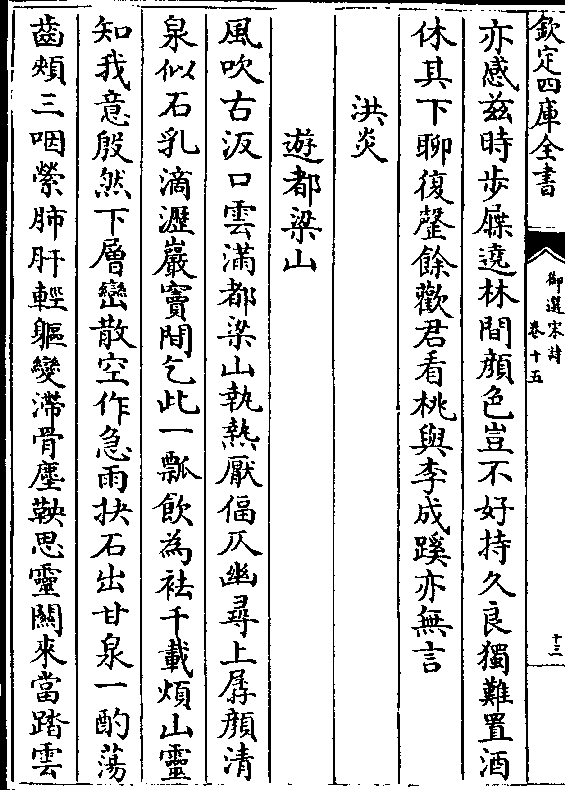 欽定四庫全書
御選宋詩
卷十五
十三
亦感兹時步屧遶林間顔色豈不好持久良獨難置酒
休其下聊復罄餘歡君看桃與李成蹊亦無言
洪炎
遊都梁山
風吹古汳口雲滿都梁山執熱厭偪仄幽尋上孱顔清
泉似石乳滴瀝巖竇間乞此一瓢飲為袪千載煩山靈
知我意殷然下層巒散空作急雨抉石出甘泉一酌蕩
齒頰三咽縈肺肝輕軀變滯骨塵鞅思靈關來當踏雲